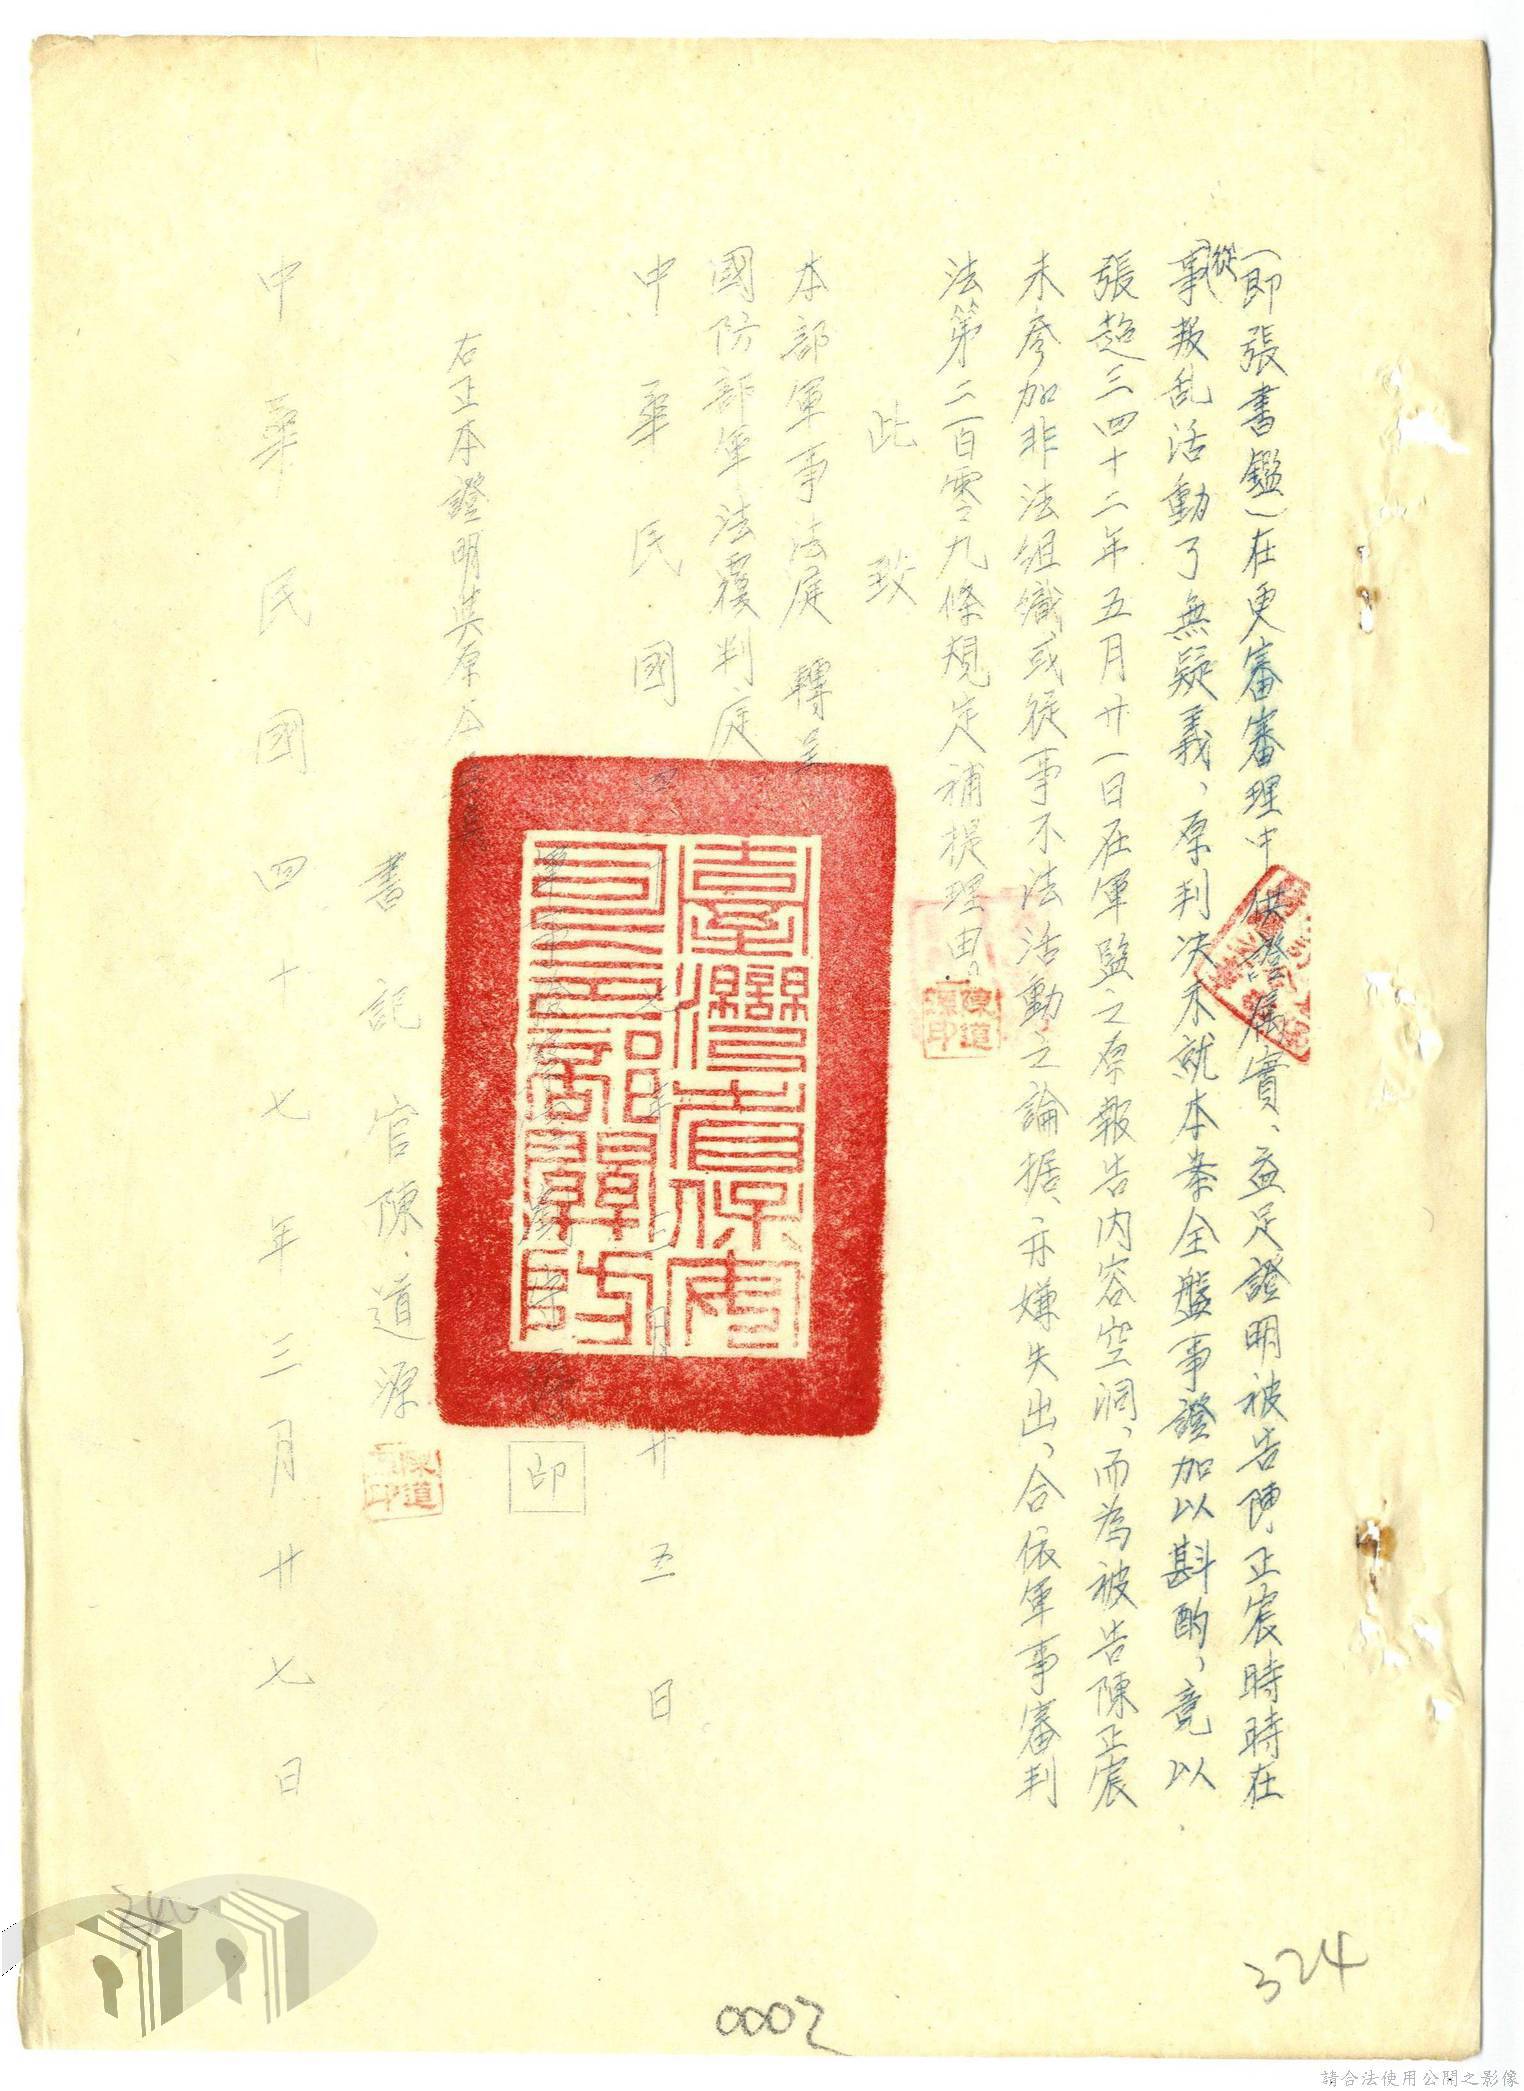 (即張書鑑)在更審審理中供證屬實、益足證明被告陳正宸時時在
從事叛乱活動了無疑義，原判決未就本案全盤事證加以斟酌，竟以
張趁三四十二年五月廿一日在軍監之原報告內容空洞，而為被告陳正宸
未參加非法組織或從事不法活動之論据、亦嫌失出、合依軍事審判
法第二百零九條規定補提理由。
此致
本部軍事法庭 轉呈
國防部軍法覆判庭
中華民國四十七年三月廿五日
印
右正本證明與原本無異
書記官陳道源
中華民國四十七年三月廿七日
臺灣省保安司令部關防
陳道源印
陳道源印
324
0002
請合法使用公開之影像